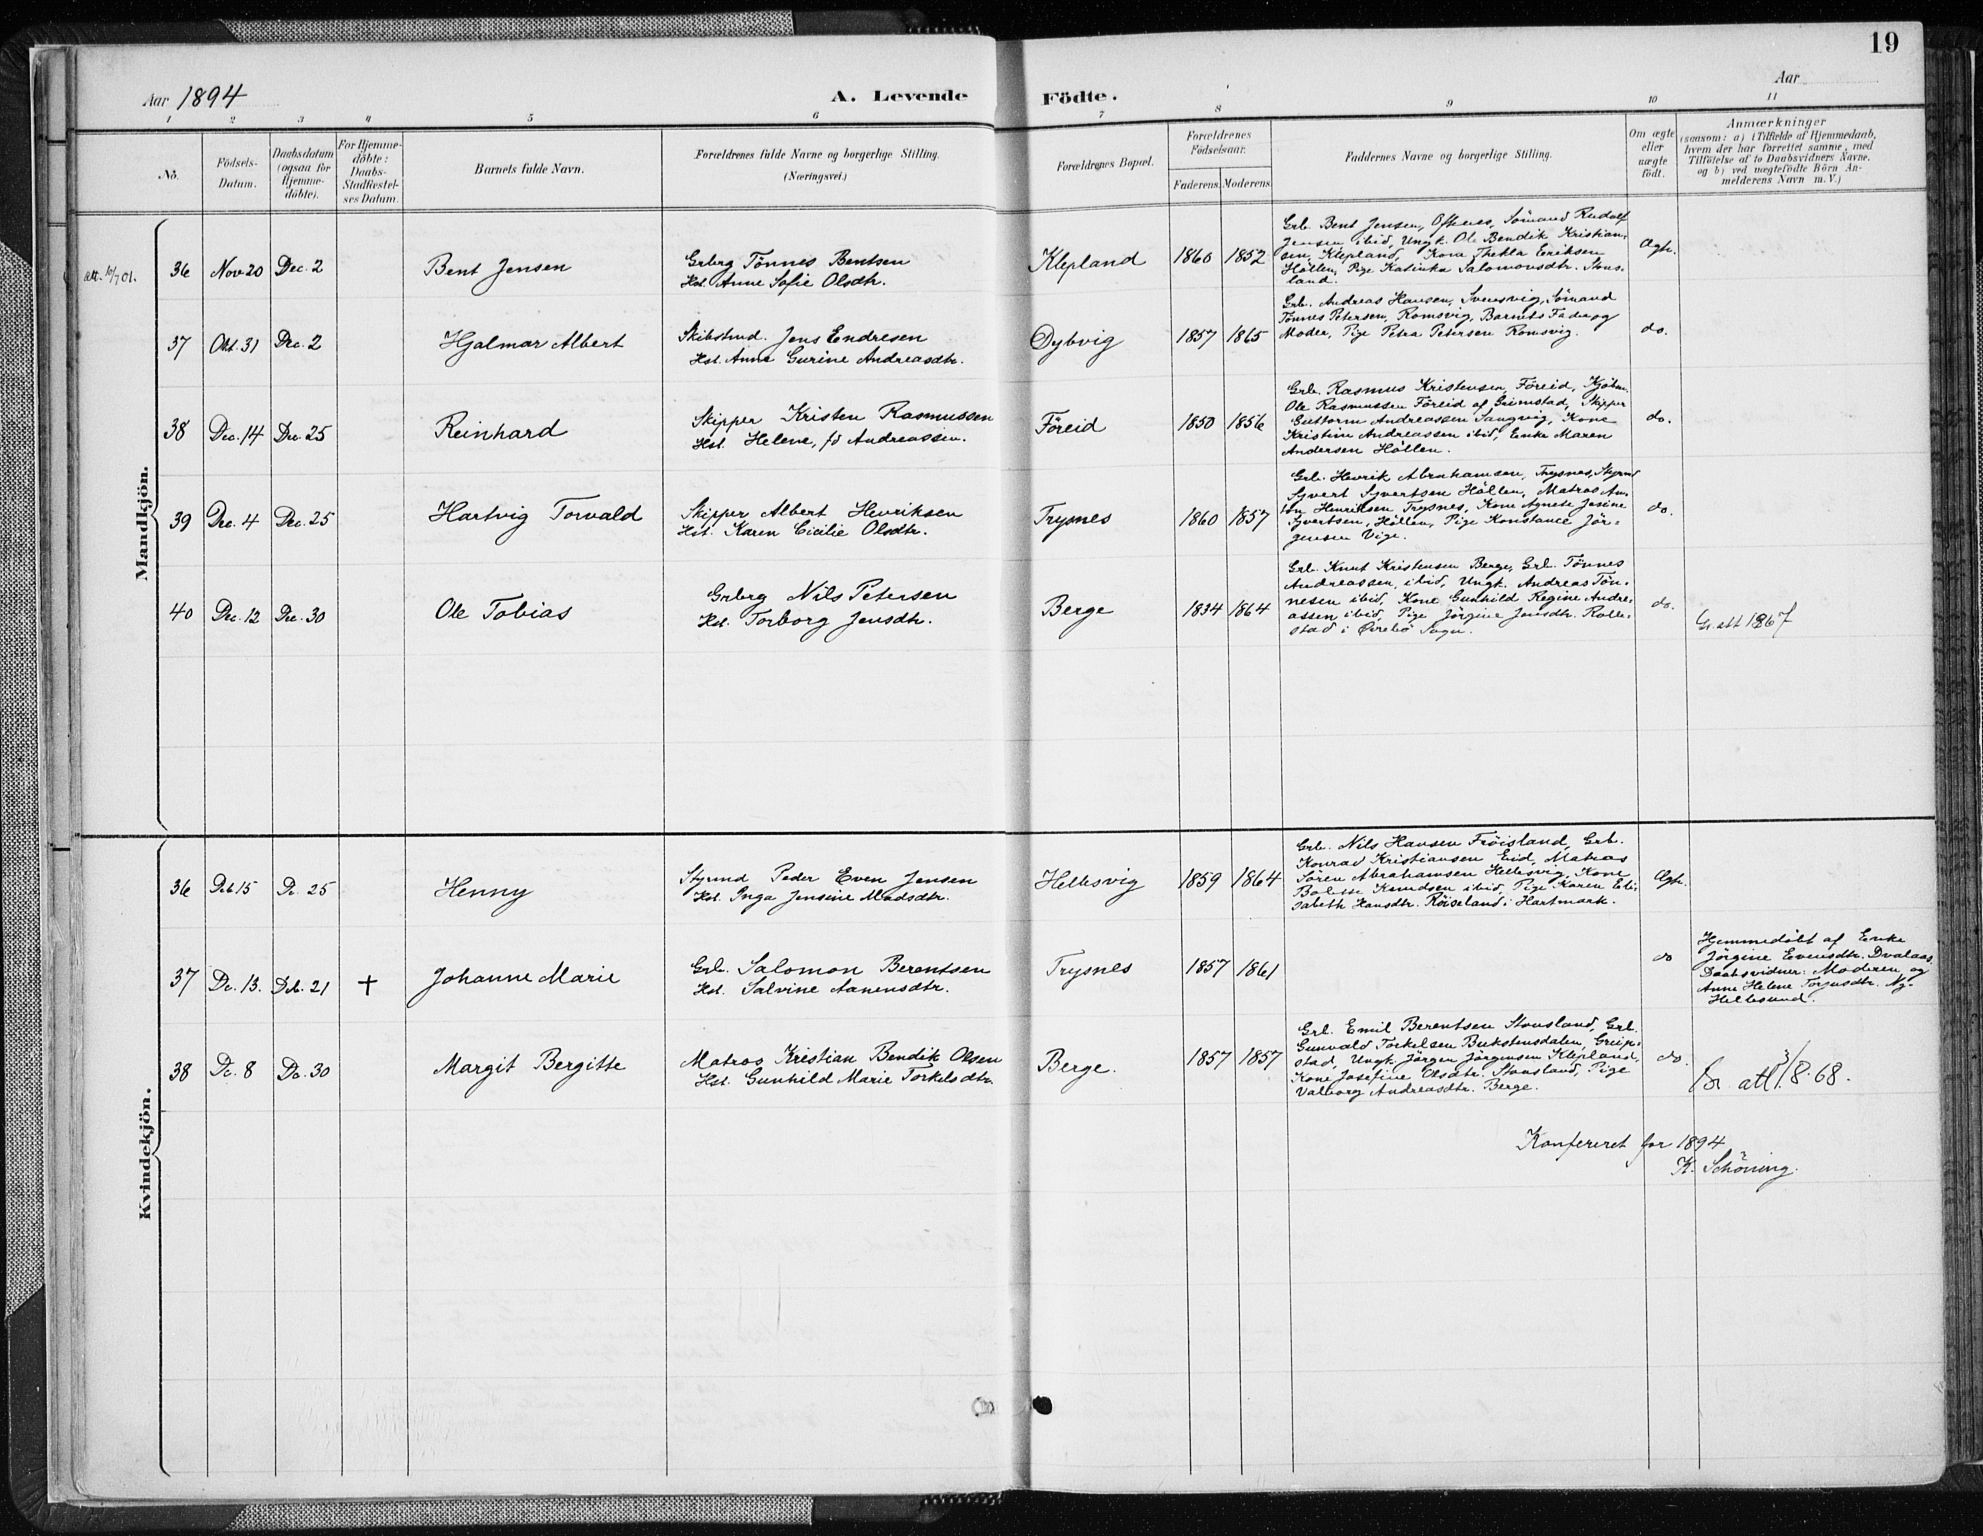 19
Aar 1894
A. Levende Födte.
Aar
1 2 3 4 5 6 7 8 9 10 11
No.
Födsels-Datum.
Daabsdatum (ogsaa for Hjemme-döbte).
For Hjemme-döbte: Daabs-Stadfæstel-ses Datum.
Barnets fulde Navn.
Forældrenes fulde Navne og borgerlige Stilling.
(Næringsvei.)
Forældrenes Bopæl.
Forældrenes Födselsaar.
Faderens. Moderens.
Faddernes Navne og borgerlige Stilling.
Om ægte eller uægte födt.
Anmærkninger
(saasom: a) i Tilfælde af Hjemmedaab,
hvem der har forrettet samme, med
Tilföielse af to Daabsvidners Navne.
og b) ved uægtefödte Börn An-
melderens Navn m. V.)
Mandkjön.
att. 10/7 01.
36 Nov 20 Dec. 2 Bent Jensen
Grbrg Tönnes Bentsen
Hst. Anne Sofie Olsdtr.
Klepland 1860 1852
Grb. Bent Jensen, Ofstenes, Sömand Rudolf
Jensen ibid, Ungk. Ole Bendik Kristian-
sen, Klepland, Kone Thekla Eriksen
Höllen, Pige Katinka Salomonsdtr. Stous-
land.
Ægte.
37 Okt. 31 Dec. 2 Hjalmar Albert
Skibstmd. Jens Endresen
Hst. Anne Gurine Andreasdtr.
Dybvig 1857 1865
Grb. Andreas Hansen, Svensvig, Sömand
Tönnes Petersen, Romsvig, Barnets Fader og
Moder, Pige Petra Petersen Romsvig.
do.
38 Dec. 14 Dec. 25 Reinhard
Skipper Kristen Rasmussen
Hst. Helene, fd Andreassen.
Föreid 1850 1856
Grb. Rasmus Kristensen, Föreid, Kjöbm.
Ole Rasmussen Föreid af Grimstad, Skipper
Guttorm Andreassen Sangvig, Kone
Kristine Andreassen ibid, Enke Maren
Andersen Höllen.
do.
39 Dec. 4 Dec. 25 Hartvig Torvald
Skipper Albert Henriksen
Hst. Karen Cicilie Olsdtr.
Trysnes 1860 1857
Grb. Henrik Abrahamsen, Trysnes, Styrmd
Syvert Syvertsen Höllen, Matros An-
ton Henriksen Trysnes, Kone Agnete Josine
Syvertsen, Höllen, Pige Konstance Jör-
gensen Vige.
do.
40 Dec. 12 Dec. 30 Ole Tobias
Grbrg Nils Petersen
Hst. Torborg Jensdtr.
Berge 1834 1864
Grb. Knut Kristensen Berge, Grb. Tönnes
Andreassen, ibid, Ungk. Andreas Tön-
nesen ibid, Kone Gunhild Regine Andre-
assen ibid, Pige Jörgine Jensdtr. Rolle-
stad i Øvrebö Sogn.
do.
Gr. att 1867
Kvindekjön.
36 Dec. 15 D. 25 Henny
Styrmd Peder Even Jensen
Hst. Inga Jensine Madsdtr.
Hellesvig 1859 1864
Grb. Nils Hansen Fröisland, Grb.
Konrad Kristiansen Eid, Matros
Sören Abrahamsen Hellesvig, Kone
Bolette Knudsen ibid, Pige Karen Eli-
sabeth Hansdtr. Röiseland i Hartmark.
Ægte.
37 Dc. 13. Dcb. 21 + Johanne Marie
Grb. Salomon Berentsen
Hst. Salvine Aanensdtr.
Trysnes 1857 1861
do
Hjemmedöbt af Enke
Jörgine Evensdtr. Dvalaas
Daabsvidner: Moderen og
Anne Helene Torjusdtr. Ny-
Hellesund.
38 Dc. 8 Dc. 30 Margit Bergitte
Matros Kristian Bendik Olsen
Hst. Gunhild Marie Torkelsdtr.
Berge. 1857 1857
Grb. Emil Berentsen Stousland, Grb.
Gunvald Torkelsen Bukstensdalen, Greip-
stad, Ungk. Jörgen Jörgensen Klepland,
Kone Josefine Olsdtr. Stousland, Pige
Valborg Andreasdtr. Berge.
do
Gr. att 8.68.
Konfereret for 1894
K. Schöning.